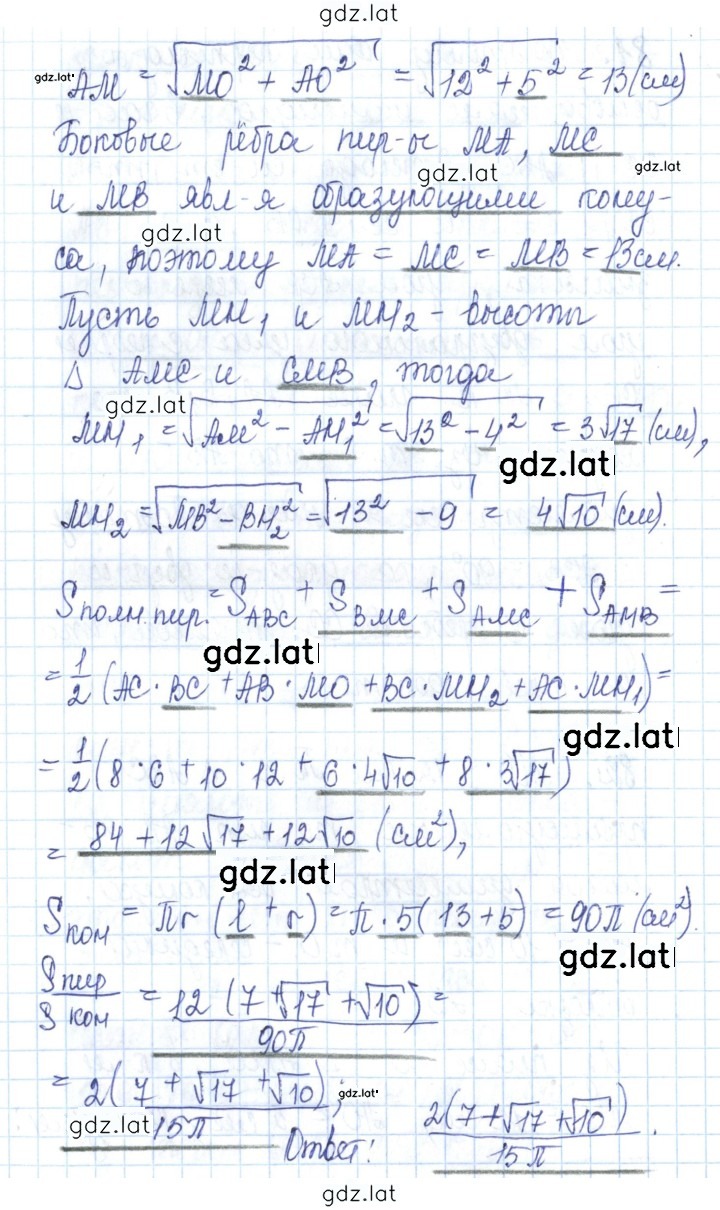 gdz.lat
gdz.lat AM = √(MO² + AO²) = √(12² + 5²) = 13 (см)
Боковые рёбра пир-ы MA, MC
gdz.lat gdz.lat
и MB явл-я образующими кону-
gdz.lat
са, поэтому MA = MC = MB = 13см.
Пусть MH₁ и MH₂ - высоты
△ AMC и CMB, тогда
gdz.lat
MH₁ = √(AM² - AH₁²) = √(13² - 4²) = 3√17 (см),
gdz.lat
MH₂ = √(MB² - BH₂²) = √(13² - 9) = 4√10 (см).
Sполн.пир. = S_ABC + S_BMC + S_AMC + S_AMB =
gdz.lat
= 1/2 (AC · BC + AB · MO + BC · MH₂ + AC · MH₁) =
gdz.lat
= 1/2 (8 · 6 + 10 · 12 + 6 · 4√10 + 8 · 3√17)
= 84 + 12√17 + 12√10 (см²),
gdz.lat
Sкон = πr (l + r) = π · 5 (13 + 5) = 90π (см²).
gdz.lat
Sпир/Sкон = 12 (7 + √17 + √10)/90π =
= 2(7 + √17 + √10)/15π; gdz.lat
gdz.lat
Ответ: 2(7 + √17 + √10)/15π.
gdz.lat